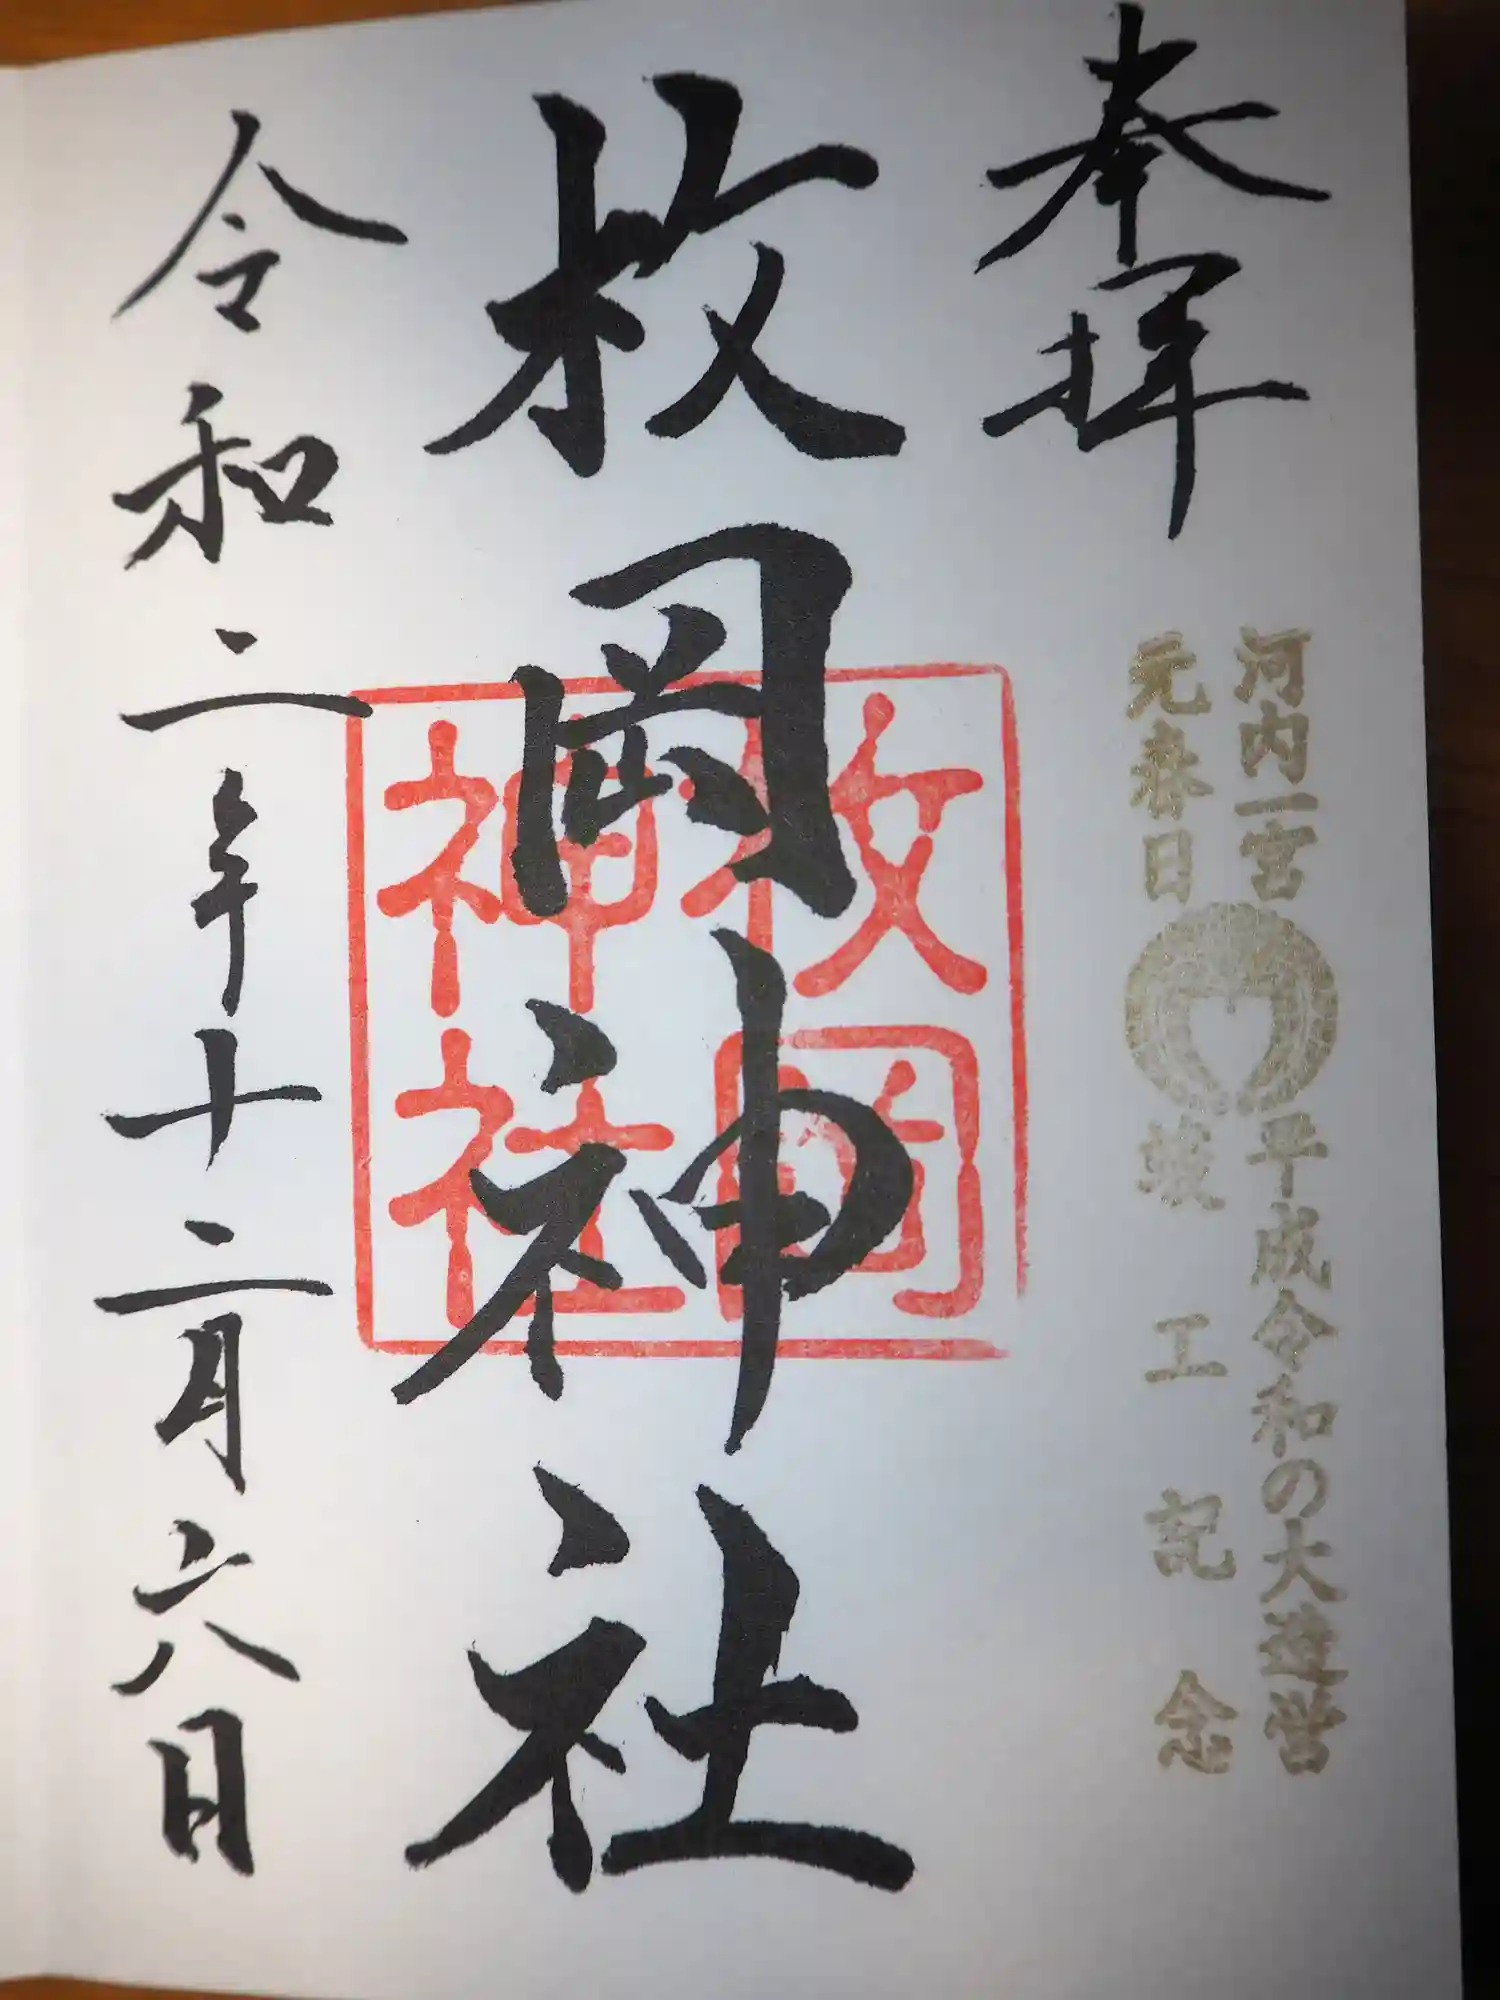 奉拝
河内一宮
平成令和の大造営
元春日
竣工記念
枚岡神社
枚岡
神社
令和二年十二月六日